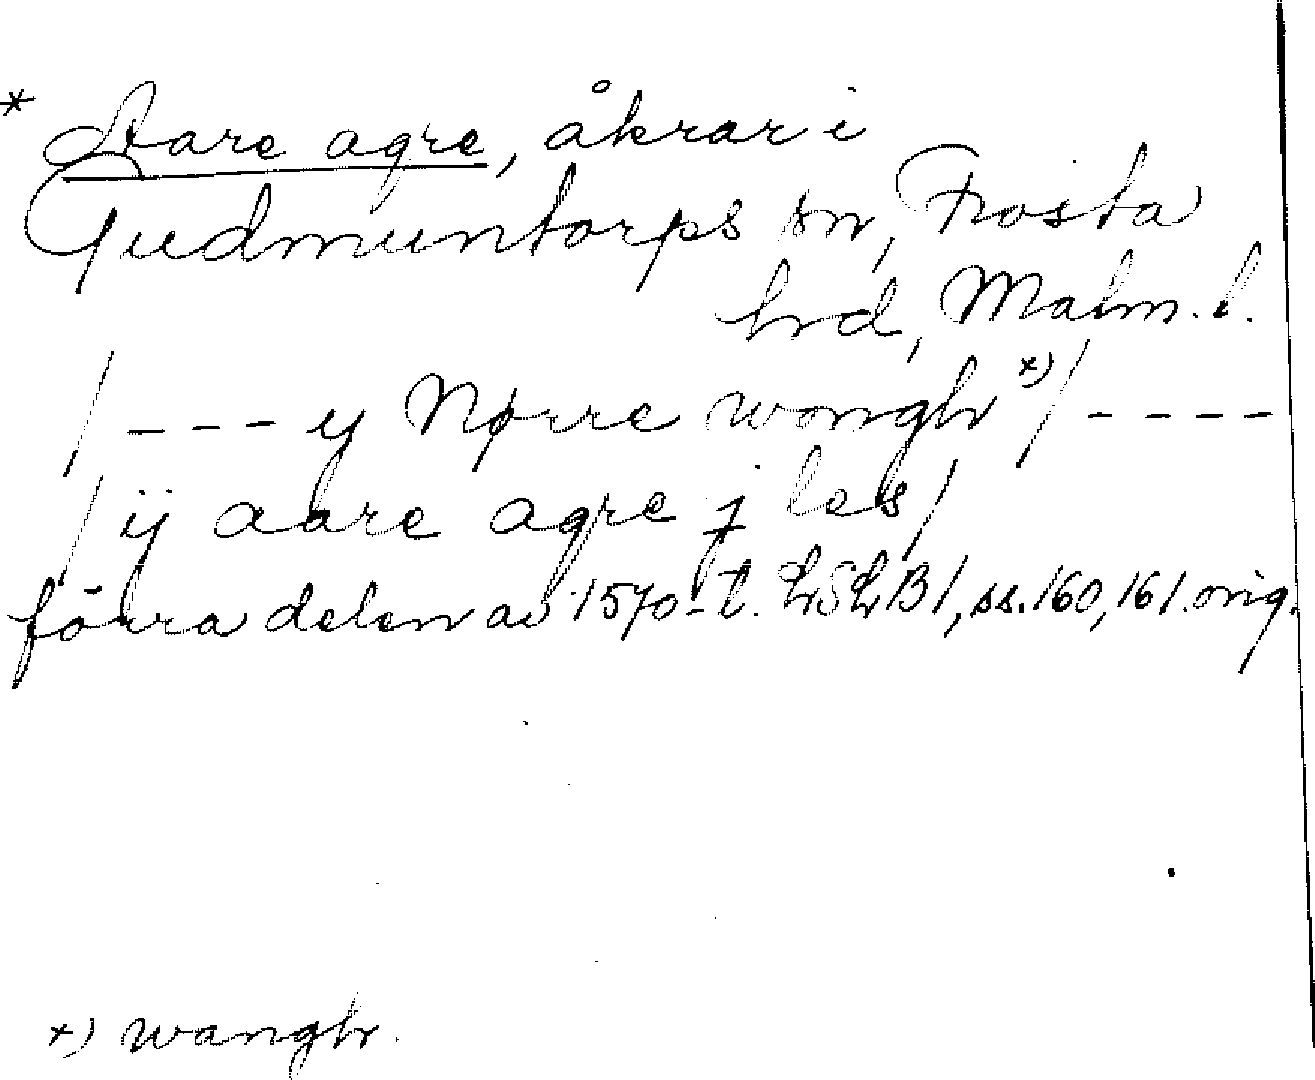 * Aare agre, åkrar i
Gudmuntorps sn, Frosta
hrd, Malm. l.
/ - - - y Nørre wongh x) / - - - -
/ ij aare agre j les /
förra delen av 1570-t. LSLB1, ss. 160, 161. orig.
x) wangh.